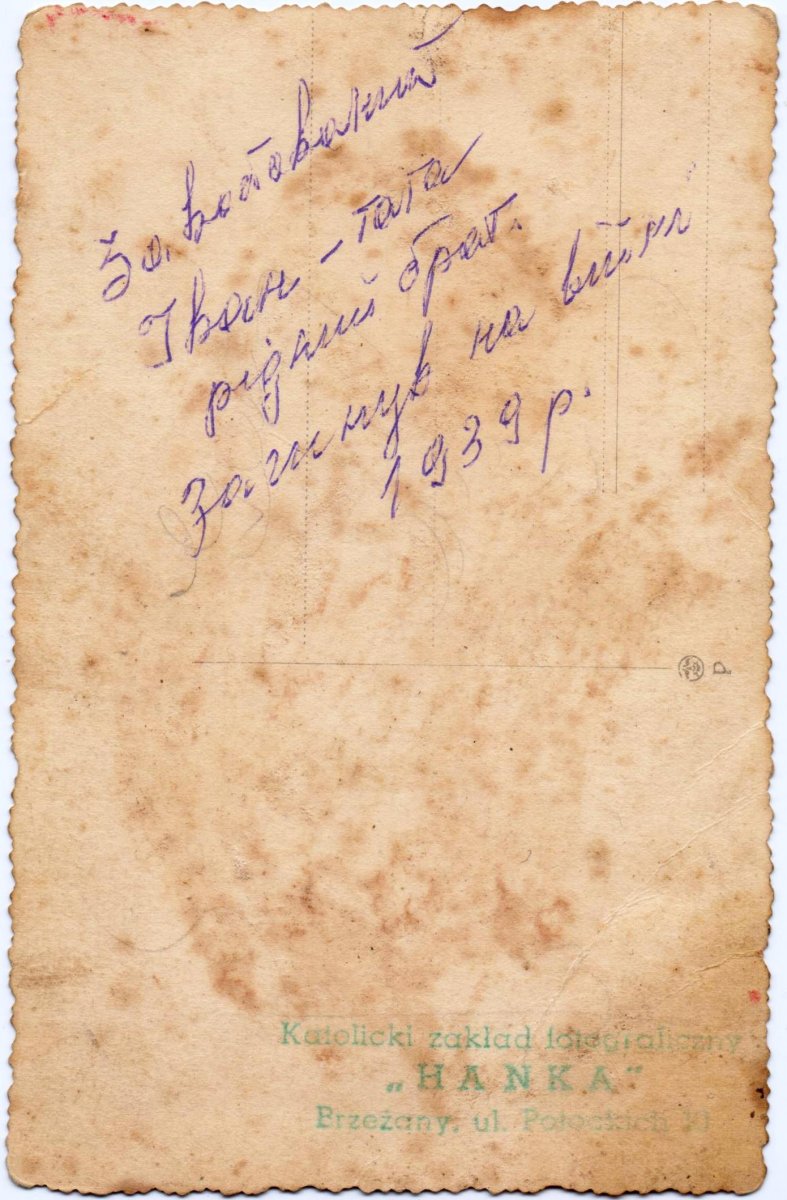 Іван - тата
рідний брат.
Загинув на війні
1939 р.
P
Katolicki zakład fotograficzny
„HANKA"
Brzeżany, ul. Potockich